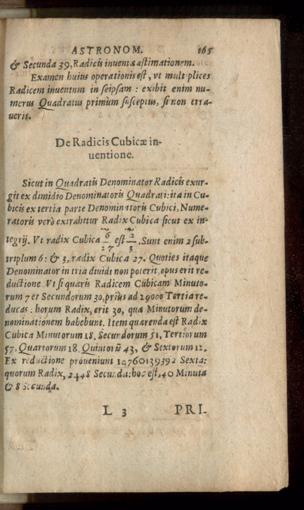 ASTRONOM. 165
& Secunda 39. Radicis inventæ æstimationem.
Examen huius operationis est, vt mult plices
Radicem inuentum in seipsam: exibit enim nu-
merus Quadratus primùm susceptus, si non erra-
ueris.
De Radicis Cubicæ in-
uentione.
Sicut in Quadratis Denominator Radicis exur-
git ex dimidio Denominatoris Quadrati: ita in Cu-
bicis ex tertia parte Denominatoris Cubici. Nume-
ratoris verò extrahetur Radix Cubica sicut ex in-
tegrij. Vt radix Cubica 6/27 est 2/3. Sunt enim 2 sub-
triplum 6: & 3, radix Cubica 27. Quoties itaque
Denominator in tria diuidi non poterit, opus erit re-
ductione. Vt si quæris Radicem Cubicam Minuto-
rum 7 et Secundorum 30, priùs ad 29000 Tertia re-
ducas: horum Radix, erit 30, quæ Minutorum de-
nominationem habebunt. Item quærenda est Radix
Cubica Minutorum 18. Secundorum 51, Tertiorum
57. Quartorum 18. Quintorũ 43, & Sextorum 12.
Ex reductione proueniunt 14760139392 Sexta:
quorum Radix, 2448 Secunda: hoc est, 40 Minuta
& 8 Secunda.
L 3 PRI-